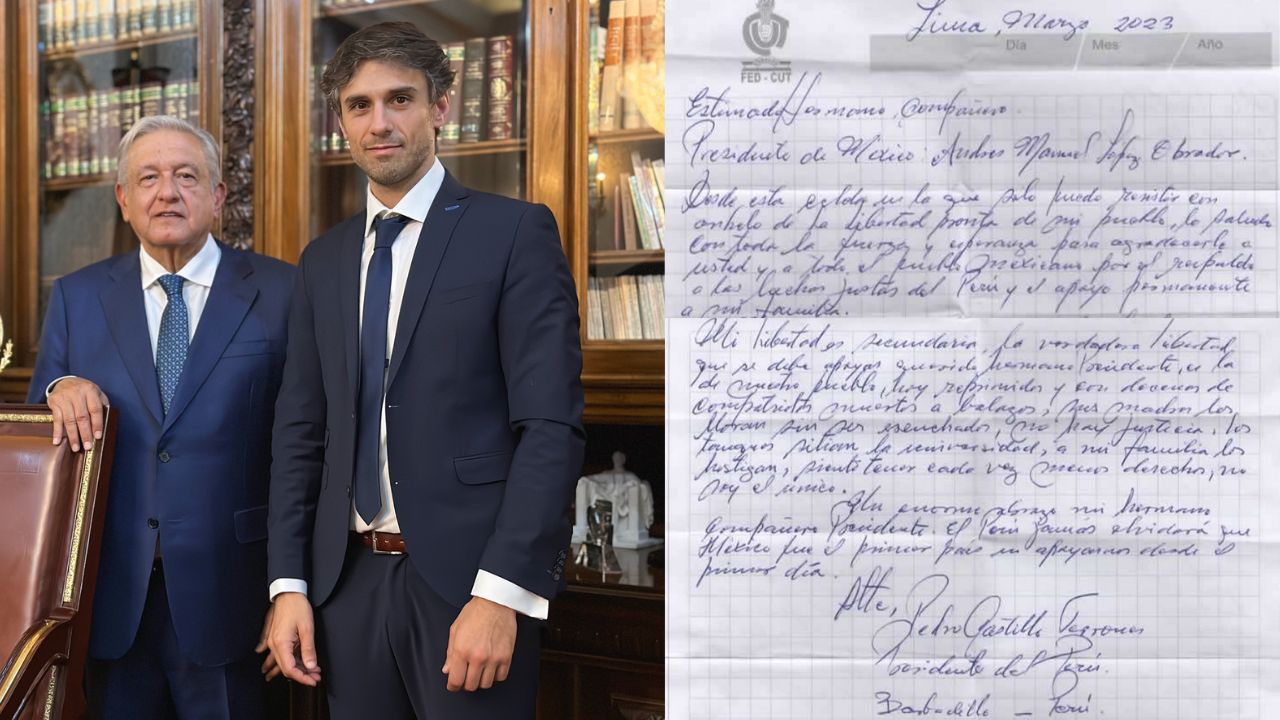 FED - CUT
Lima, Marzo 2023
Día / Mes / Año
Estimado Hermano, Compañero.
Presidente de México: Andres Manuel Lopez Obrador.
Desde esta celda en la que solo puedo resistir con
anhelo de la libertad pronta de mi pueblo, lo saludo
con toda la fuerza y esperanza para agradecerle a
usted y a todo el pueblo mexicano por el respaldo
a las luchas justas del Perú y el apoyo permanente
a mi familia.
Mi libertad es secundaria, la verdadera libertad
que se debe apoyar querido hermano Presidente, es la
de nuestro pueblo, hoy reprimidos y con decenas de
compatriotas muertos a balazos, sus madres los
lloran sin ser escuchados, no hay justicia, los
tanques sitian la universidad, a mi familia los
hostigan, siento tener cada vez menos derechos, no
soy el único.
Un enorme abrazo mi hermano
Compañero Presidente el Perú jamas olvidará que
México fue el primer país en apoyarnos desde el
primer día.
Atte,
Pedro Castillo Terrones
Presidente del Perú.
Barbadillo - Perú.